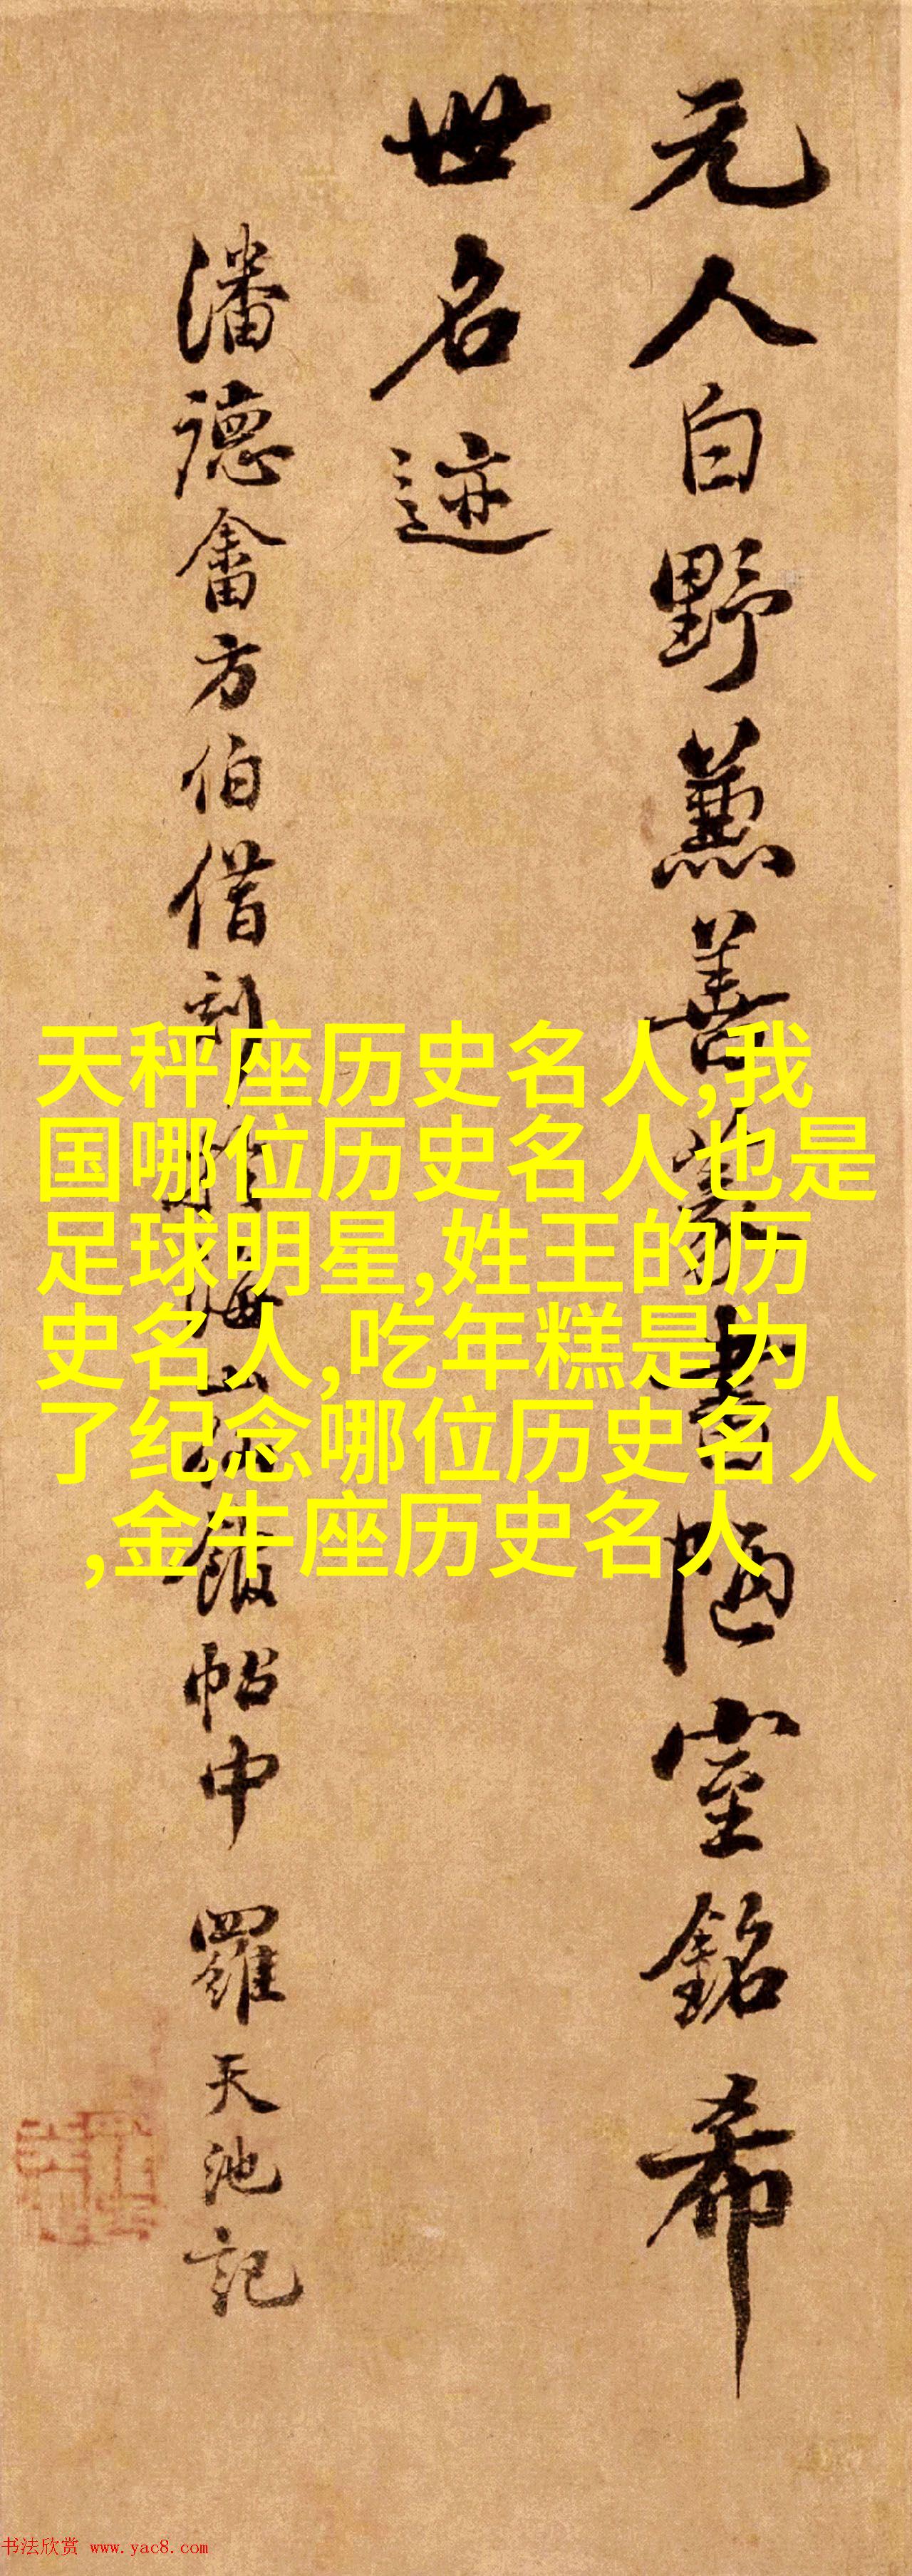 元人白野薰善篆書陋室銘希
世名迹
潘德畬方伯借刻
帖中 羅天池記
天秤座历史名人,我
国哪位历史名人也是
足球明星,姓王的历
史名人,吃年糕是为
了纪念哪位历史名人
,金牛座历史名人
书法欣赏 www.yac8.com